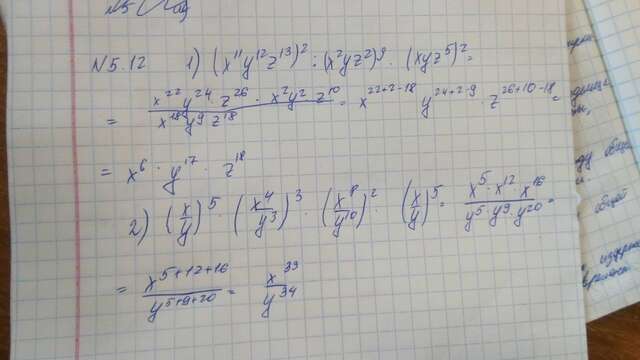 №5
№5.12 1) (x¹¹y¹²z¹³)² : (x²yz²)⁹ · (xyz⁵)² =
= (x²²y²⁴ · z²⁶ · x²y² · z¹⁰)/(x¹⁸y⁹z¹⁸) = x²²⁺²⁻¹⁸ y²⁴⁺²⁻⁹ · z²⁶⁺¹⁰⁻¹⁸ =
= x⁶ · y¹⁷ · z¹⁸
2) (x/y)⁵ · (x⁴/y³)³ · (x⁸/y¹⁰)² · (x/y)⁵ = (x⁵ · x¹² · x¹⁶)/(y⁵ · y⁹ · y²⁰) =
= x⁵⁺¹²⁺¹⁶/y⁵⁺⁹⁺²⁰ = x³³/y³⁴